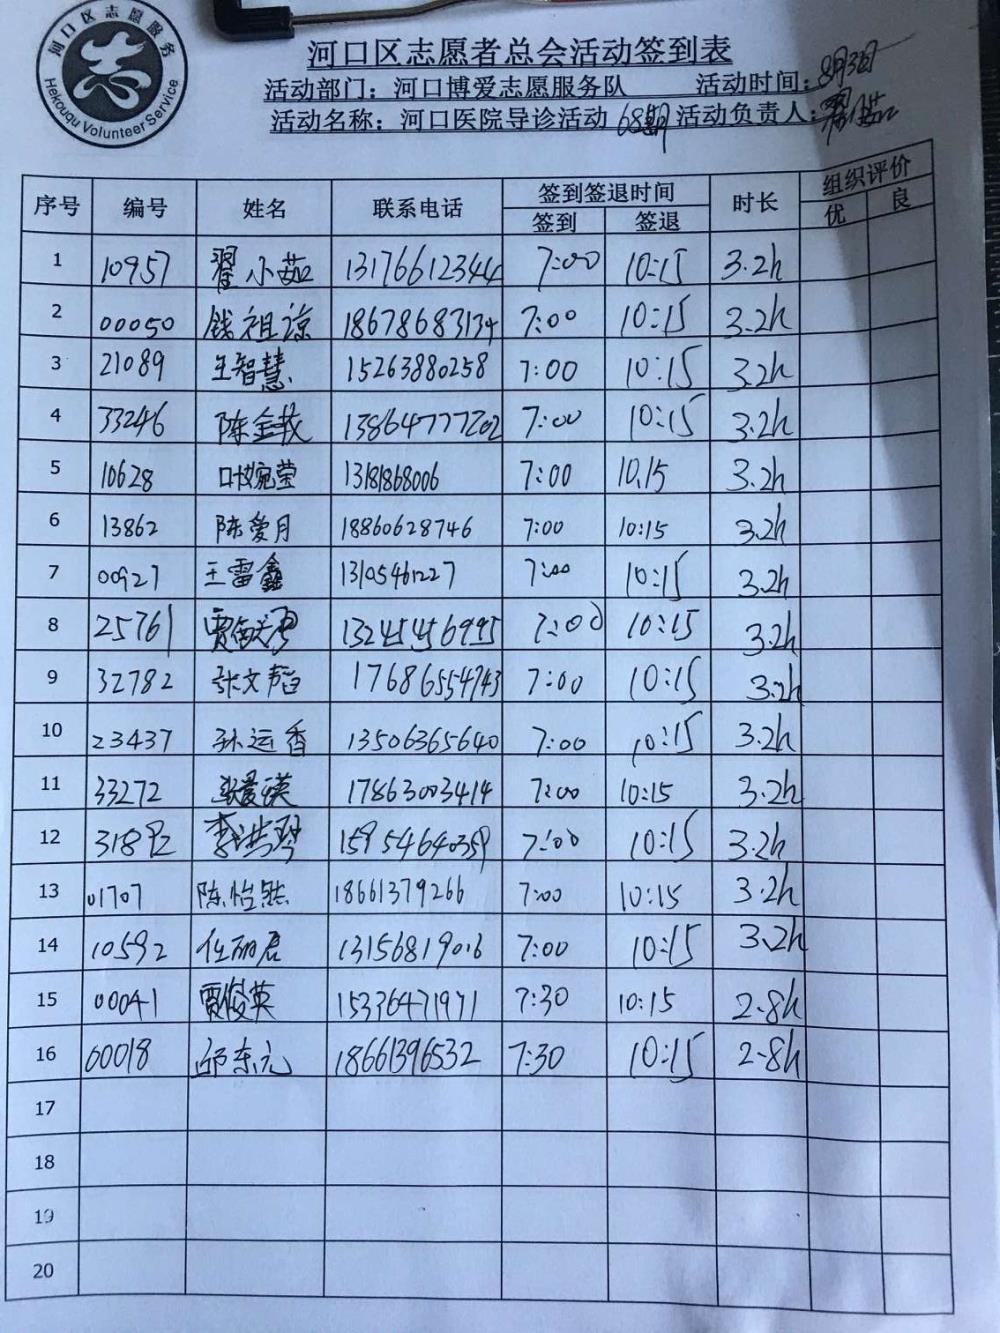 河口区志愿服务
Hekouqu Volunteer Service
河口区志愿者总会活动签到表
活动部门：河口博爱志愿服务队 活动时间：8月3日
活动名称：河口医院导诊活动 68期 活动负责人：翟小茹
序号 编号 姓名 联系电话 签到签退时间 时长 组织评价
签到 签退 优 良
1 10957 翟小茹 13176612344 7:00 10:15 3.2h
2 00050 钱祖谅 18678683134 7:00 10:15 3.2h
3 21089 王智慧 15263880258 7:00 10:15 3.2h
4 33246 陈金 13864777202 7:00 10:15 3.2h
5 10628 叶婉莹 13181868006 7:00 10.15 3.2h
6 13862 陈爱月 18860628746 7:00 10:15 3.2h
7 00927 王雷鑫 13105461227 7:00 10:15 3.2h
8 25761 贾 13245456995 7:00 10:15 3.2h
9 32782 张文韬 17686554743 7:00 10:15 3.2h
10 23437 孙运香 13506365640 7:00 10:15 3.2h
11 33272 张爱英 17863003414 7:00 10:15 3.2h
12 31892 李洪琴 15954640359 7:00 10:15 3.2h
13 01707 陈怡然 18661379266 7:00 10:15 3.2h
14 10592 任丽君 13156819016 7:00 10:15 3.2h
15 00041 贾俊英 15336471971 7:30 10:15 2.8h
16 60018 邱东元 18661396532 7:30 10:15 2.8h
17
18
19
20